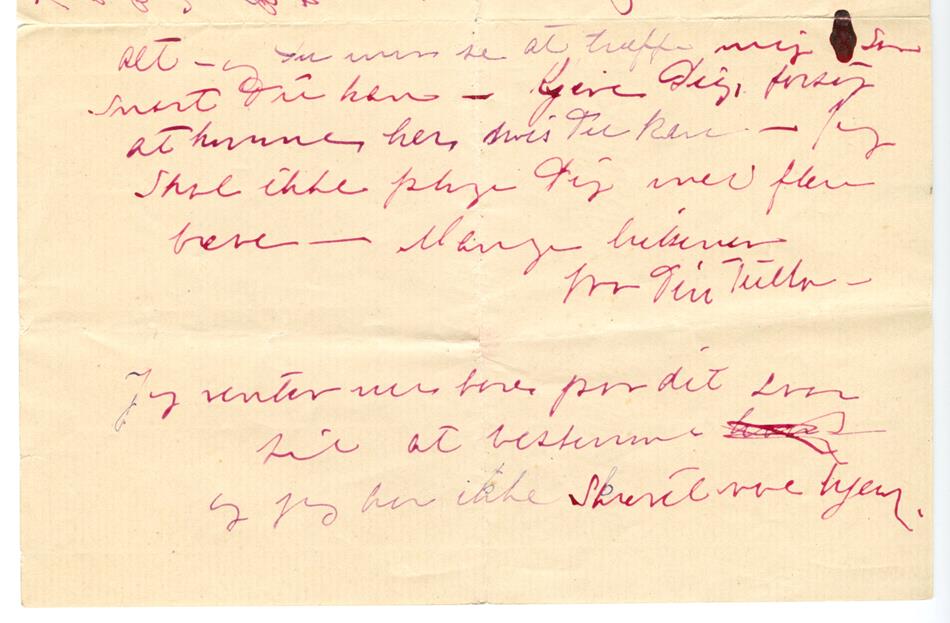 alt – og Du maa se at træffe mig saa
snart Du kan – Kjære Dig, forsøg
at komme her, hvis Du kan – Jeg
skal ikke plage Dig med flere
breve – Mange hilsener
fra Din Tulla –
Jeg venter nu bare paa dit svar
til at bestemme
og jeg har ikke skrevet noe hjem.